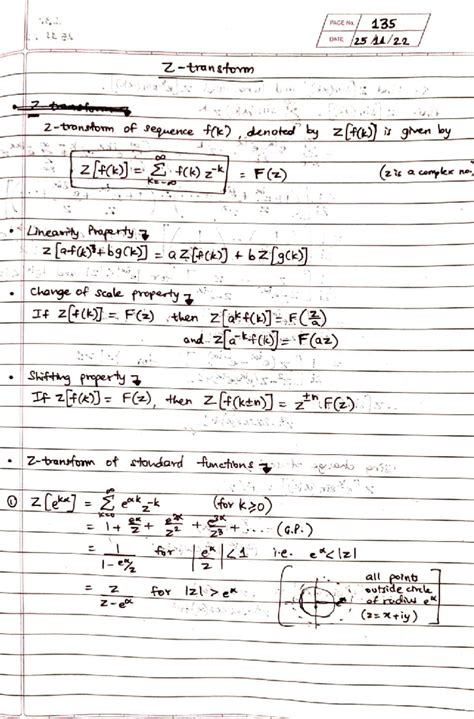 PAGE No. 135
DATE 25/11/22
Z-transform
Z-transform of sequence f(k), denoted by Z[f(k)] is given by
Z[f(k)] = ∞ Σ k=-∞ f(k) z^-k = F(z) (z is a complex no.
• Linearity Property ↴
Z[af(k)+bg(k)] = aZ[f(k)] + bZ[g(k)]
• Change of scale property ↴
If Z[f(k)] = F(z) then Z[a^k f(k)] = F(z/a)
and Z[a^-k f(k)] = F(az)
• Shifting property ↴
If Z[f(k)] = F(z), then Z[f(k±n)] = z^±n F(z)
• Z-transform of standard functions ↴
① Z[e^kα] = ∞ Σ k=0 e^αk z^-k (for k≥0)
= 1 + e^α/z + e^2α/z^2 + e^3α/z^3 + .... (G.P.)
= 1/(1-e^α/z) for |e^α/z| < 1 i.e. e^α<|z|
= z/(z-e^α) for |z| > e^α
all points
outside circle
of radius e^α
(z=x+iy)